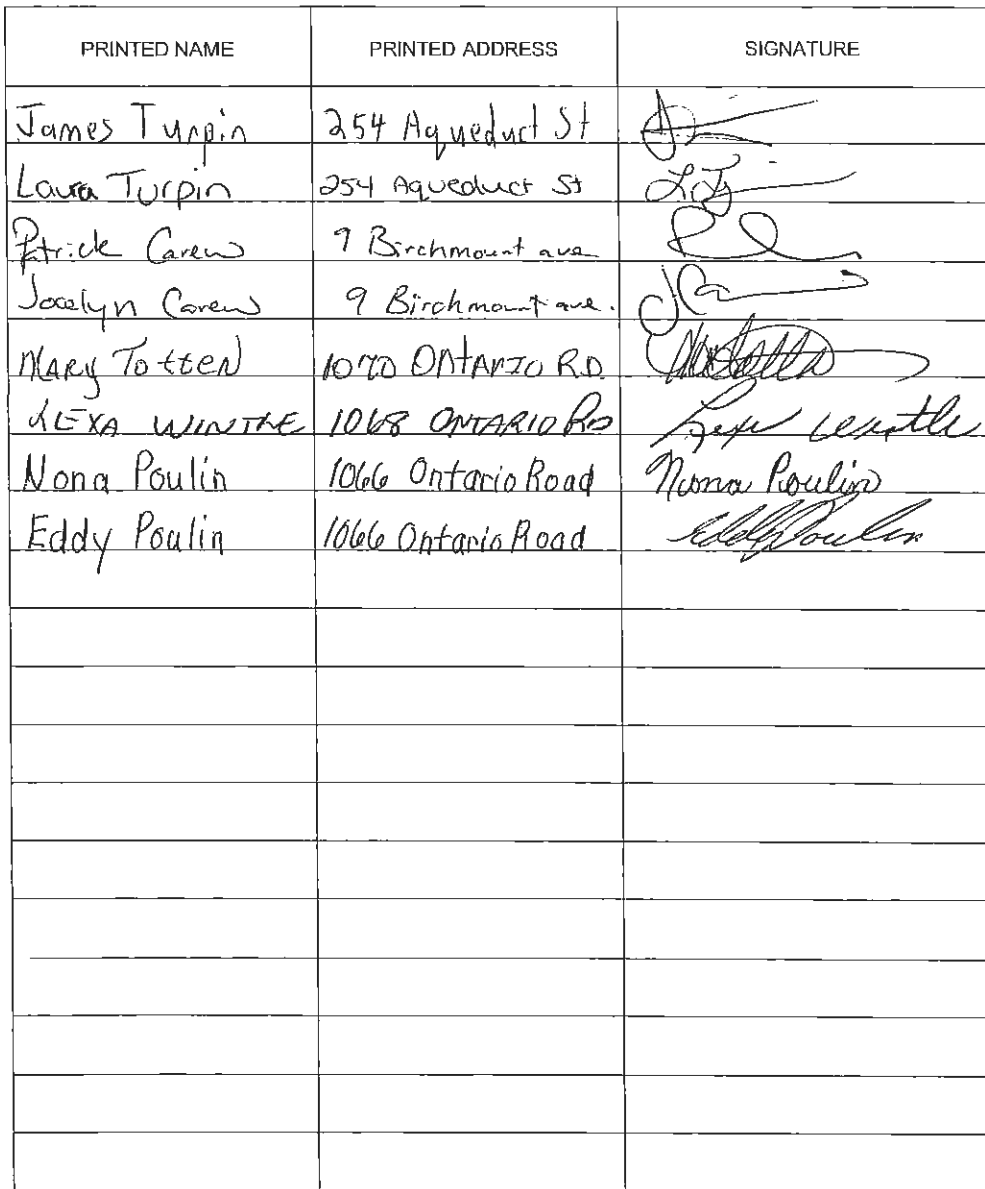 PRINTED NAME PRINTED ADDRESS SIGNATURE
James Turpin 254 Aqueduct St
Laura Turpin 254 Aqueduct St
Patrick Carew 9 Birchmount ave
Jocelyn Carew 9 Birchmount ave.
MARY Totten 1070 ONTARIO RD.
LEXA WINTLE 1068 ONTARIO RD
Nona Poulin 1066 Ontario Road Nona Poulin
Eddy Poulin 1066 Ontario Road Eddy Poulin